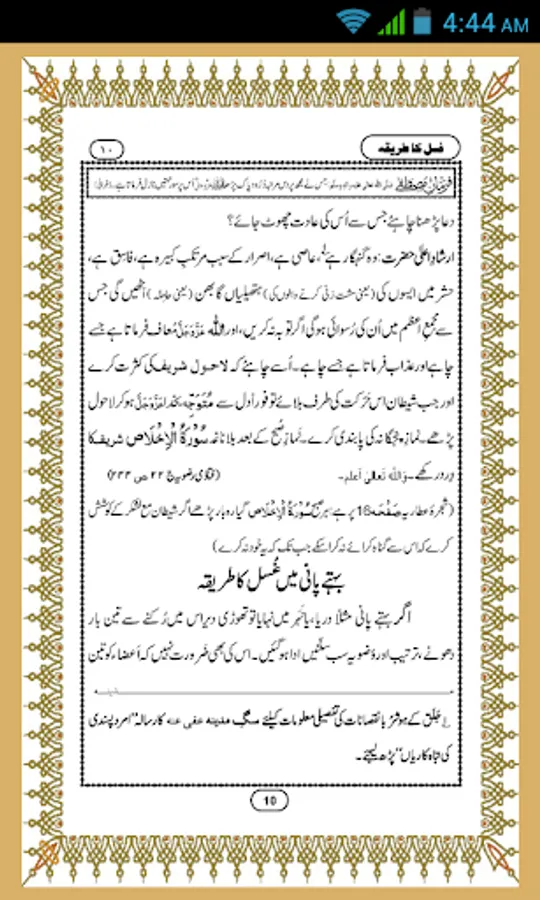 4:44 AM
١٠
غسل کا طریقہ
فرمانِ مصطفےٰ
دعا پڑھنا چاہئے جس سے اُس کی عادت چھوٹ جائے؟
ارشادِ اعلیٰ حضرت: وہ گنہگار ہے، عاصی ہے، اصرار کے سبب مرتکبِ کبیرہ ہے، فاسق ہے،
حشر میں ایسوں کی (یعنی مشت زنی کرنے والوں کی) ہتھیلیاں گابھن (یعنی حاملہ) اُٹھیں گی جس
سے مجمعِ اعظم میں اُن کی رُسوائی ہوگی اگر توبہ نہ کریں، اور اللہ عَزَّوَجَلَّ مُعاف فرماتا ہے جسے
چاہے اور عذاب فرماتا ہے جسے چاہے۔ اُسے چاہئے کہ لاحول شریف کی کثرت کرے
اور جب شیطان اس حَرَکت کی طرف بلائے تو فوراً دل سے مُتَوَجِّہ بخدا عَزَّوَجَلَّ ہو کر لاحول
پڑھے۔ نمازِ پنجگانہ کی پابندی کرے۔ نمازِ صُبح کے بعد بلا ناغہ سُوْرَۃُ الْاِخْلَاص شریف کا
وِرد رکھے۔ وَاللہُ تَعَالٰی اَعلَم۔ (فتاوٰی رضویہ ج ٢٢ ص ٢٤٤)
(شجرۂ عطاریہ صَفْحَہ 16 پر ہے: ہر صبح سُوْرَۃُ الْاِخْلَاص گیارہ بار پڑھے اگر شیطان مع لشکر کے کوشش
کرے کہ اس سے گناہ کرائے نہ کرا سکے جب تک کہ یہ خُود نہ کرے)
بہتے پانی میں غُسل کا طریقہ
اگر بہتے پانی مثلاً دریا، یا نَہَر میں نہایا تو تھوڑی دیر اس میں رُکنے سے تین بار
دھونے، ترتیب اور وُضو یہ سب سنّتیں ادا ہو گئیں۔ اس کی بھی ضَرورت نہیں کہ اَعضاء کو تین
١ جَلق کے ہوشرُبا نقصانات کی تفصیلی معلومات کیلئے سگِ مدینہ عفی عنہ کا رسالہ "امرد پسندی
کی تباہ کاریاں" پڑھ لیجئے۔
10